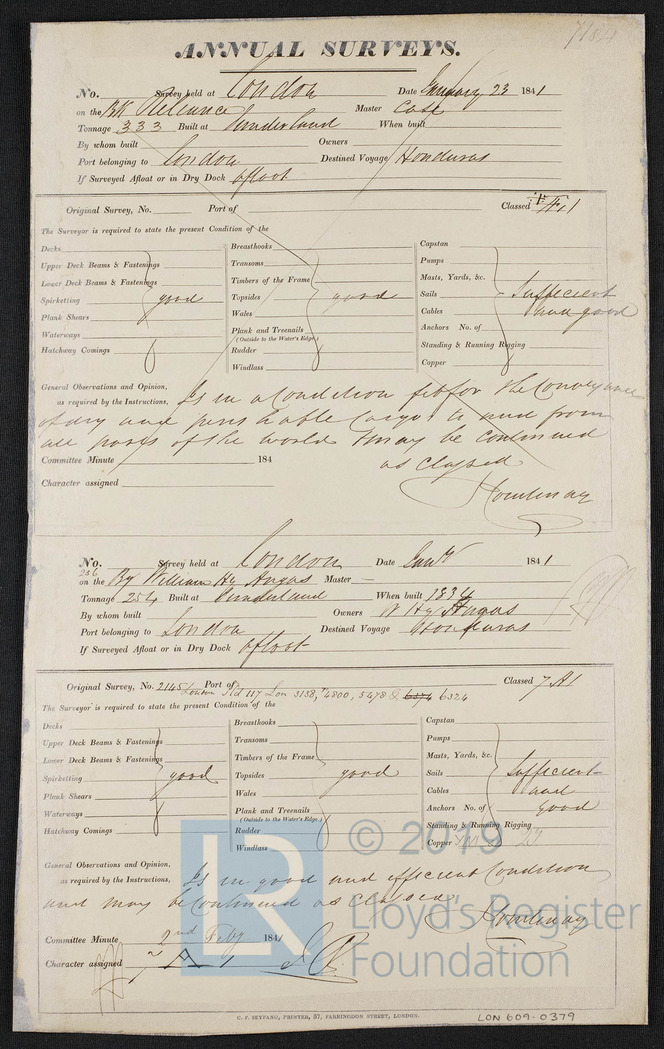 ANNUAL SURVEYS.
No. Survey held at London Date January 23 1841
on the Bk Reliance Master Case
Tonnage 333 Built at Sunderland When built
By whom built Owners
Port belonging to London Destined Voyage Honduras
If Surveyed Afloat or in Dry Dock afloat
Original Survey, No. Port of Classed Æ 1
The Surveyor is required to state the present Condition of the
Decks
Upper Deck Beams & Fastenings
Lower Deck Beams & Fastenings
Spirketting good
Plank Shears
Waterways
Hatchway Comings
Breasthooks
Transoms
Timbers of the Frame
Topsides good
Wales
Plank and Treenails
(Outside to the Water's Edge.)
Rudder
Windlass
Capstan
Pumps
Masts, Yards, &c.
Sails Sufficient
Cables and good
Anchors No. of
Standing & Running Rigging
Copper
General Observations and Opinion,
as required by the Instructions, Is in a Condition fit for the Conveyance
of dry and perishable Cargo to and from
all parts of the world & may be Continued
Committee Minute 184 as classed
Character assigned
No. Survey held at London Date Jany 1841
236
on the Bg William Hy Angas Master
Tonnage 254 Built at Sunderland When built 1834
By whom built Owners W Hy Angas
Port belonging to London Destined Voyage Honduras
If Surveyed Afloat or in Dry Dock afloat
Original Survey, No. 2145 Port of Classed 7 A 1
London Sld 117 Lon 3158, 4800, 5478 & 6374 6324
The Surveyor is required to state the present Condition of the
Decks
Upper Deck Beams & Fastenings
Lower Deck Beams & Fastenings
Spirketting good
Plank Shears
Waterways
Hatchway Comings
Breasthooks
Transoms
Timbers of the Frame
Topsides good
Wales
Plank and Treenails
(Outside to the Water's Edge.)
Rudder
Windlass
Capstan
Pumps
Masts, Yards, &c.
Sails Sufficient
Cables and
Anchors No. of good
Standing & Running Rigging
Copper
General Observations and Opinion,
as required by the Instructions, Is in good and efficient Condition
and may be Continued as classed
Committee Minute 2nd Feby 1841
Character assigned 7 A 1
© 2019
LR
Lloyd's Register
Foundation
C. F. SEYFANG, PRINTER, 57, FARRINGDON STREET, LONDON.
LON 609-0379